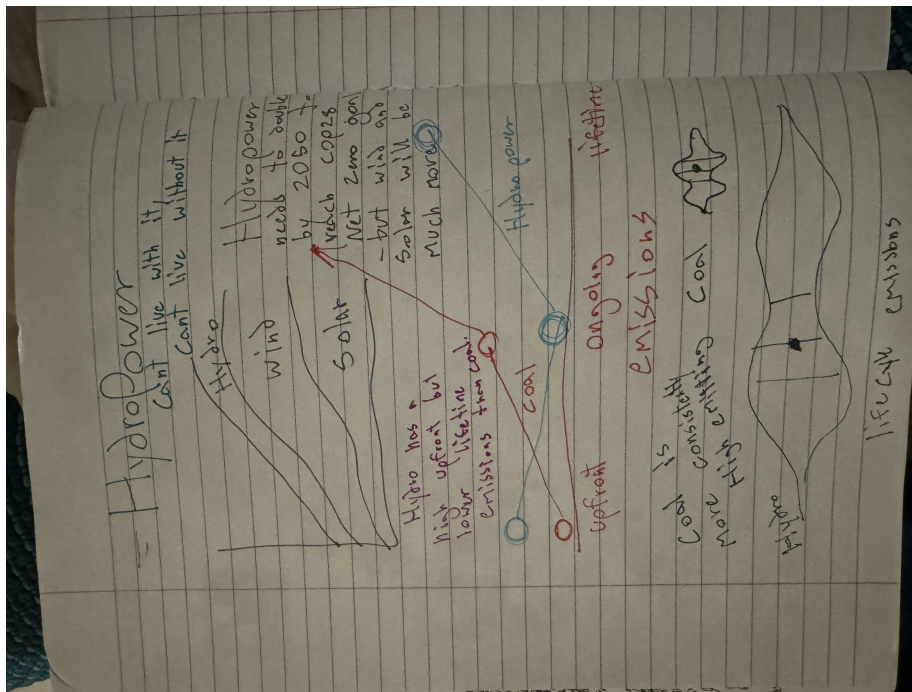 HydroPower
Can't live with it
Cant live without it
Hydro
Wind
Solar
Hydropower
needs to double
by 2050 to
reach COP28
Net Zero goal
- but wind and
Solar will be
Much more
Hydro has a
high upfront but
lower lifetime
emissions than coal.
coal
Hydropower
upfront
ongoing
lifetime
emissions
Coal is
more consistently
High emitting
Coal
Hydro
lifecycle emissions